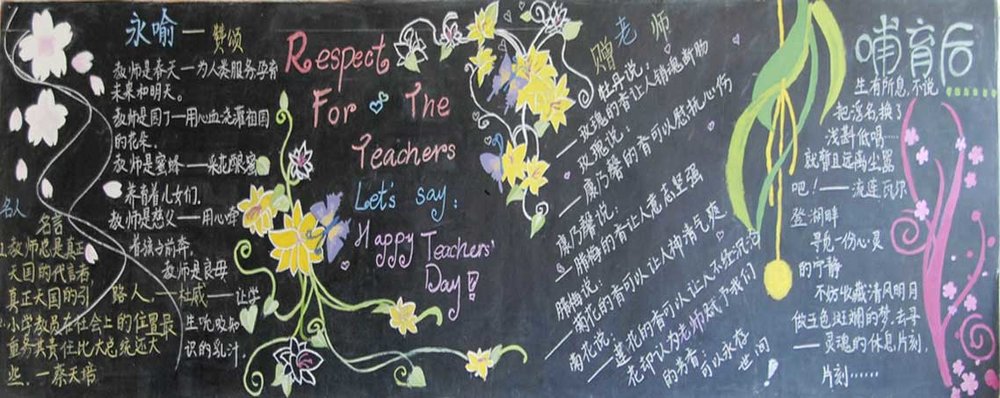 永喻—赞颂
教师是春天—为人类服务孕育
未来和明天。
教师是园丁—用心血浇灌祖国
的花朵。
教师是蜜蜂—采花酿蜜
养育着儿女们.
教师是慈父—用心牵
着孩子前奔.
教师是良母
——让学
生吮吸知
识的乳汁.
名人
名言
1.教师总是真正
天国的代言者
真正天国的引路人.—杜威
2.小学教员在社会上的位置最
重要其责任比大总统还大
些.—蔡元培
Respect
For The
Teachers
Let's say:
Happy Teachers'
Day!
赠老师
牡丹说:
—玫瑰的香让人销魂断肠
玫瑰说:
—虞乃馨的香可以慰抚心伤
虞乃馨说:
—腊梅的香让人意志坚强
腊梅说:
—菊花的香可以让人神清气爽
菊花说:
—莲花的香可以让人不经沉沦
老却认为老师赋予我们
的芳香可以永存
世间!
哺育后
生有所息,不说
把浮名换了
浅斟低唱…
就暂且远离尘嚣
吧!——流连瓦尔
登湖畔
寻觅一份心灵
的宁静
不妨收藏清风明月
做五色斑斓的梦.去寻
——灵魂的休息片刻,
片刻……